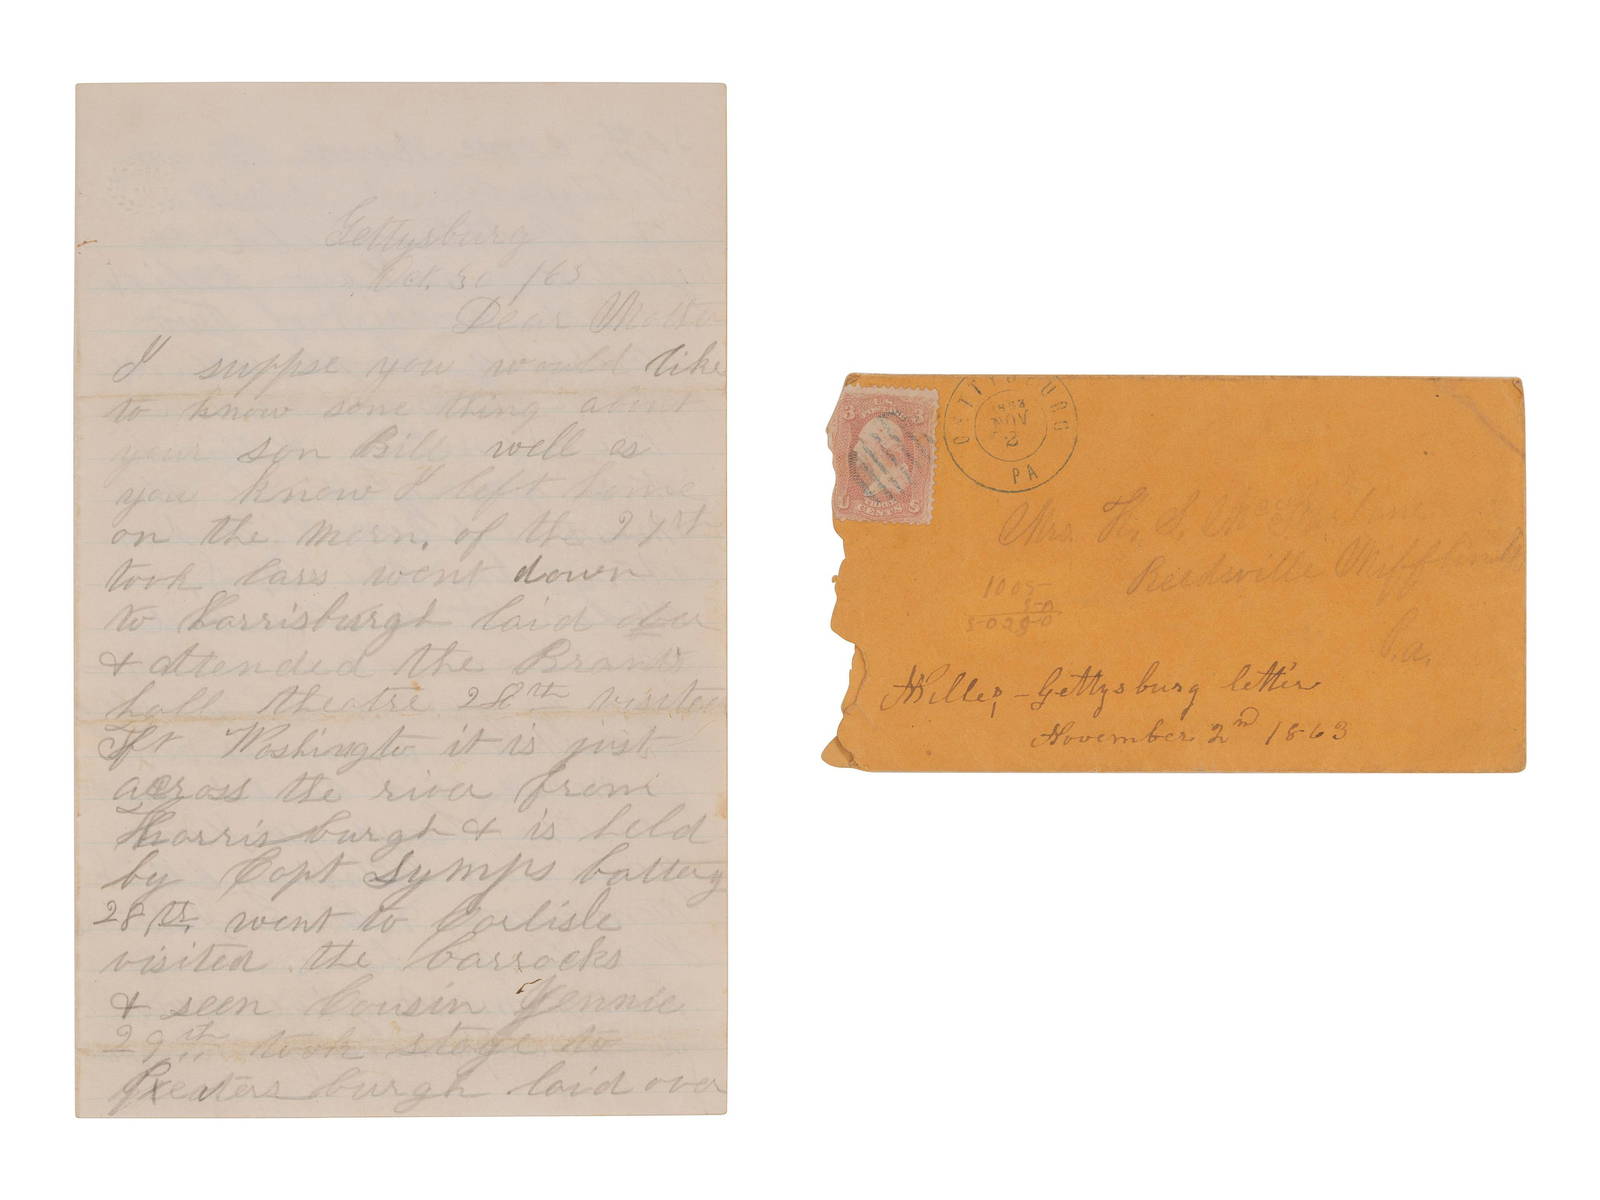 Gettysburg
Oct. 30 /63
Dear Mother
I suppse you would like
to know some thing about
your son Bill well as
you know I left home
on the morn. of the 27th
took cars went down
to Harrisburgh laid over
& attended the Brants
hall theatre 28th visited
Ft Washington it is just
across the river from
Harrisburgh & is held
by Capt Symps battery
28th. went to Carlisle
visited the barrocks
& seen Cousin Jennie
29th took stage to
Petersburgh laid over
3 3
U S
THREE
CENTS
GETTYSBURG
NOV
2
PA
Mrs. H. S.
Reedsville Mifflin Co
Pa.
1005
50
50250
Miller, - Gettysburg letter
November 2nd 1863